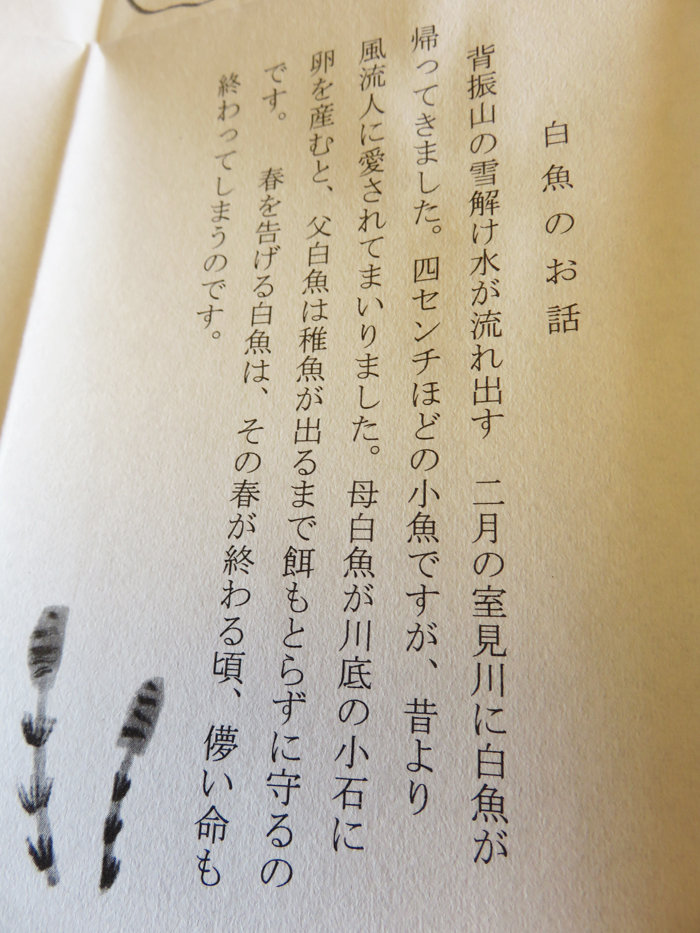 白魚のお話
背振山の雪解け水が流れ出す　二月の室見川に白魚が
帰ってきました。四センチほどの小魚ですが、昔より
風流人に愛されてまいりました。母白魚が川底の小石に
卵を産むと、父白魚は稚魚が出るまで餌もとらずに守るの
です。　春を告げる白魚は、その春が終わる頃、儚い命も
終わってしまうのです。